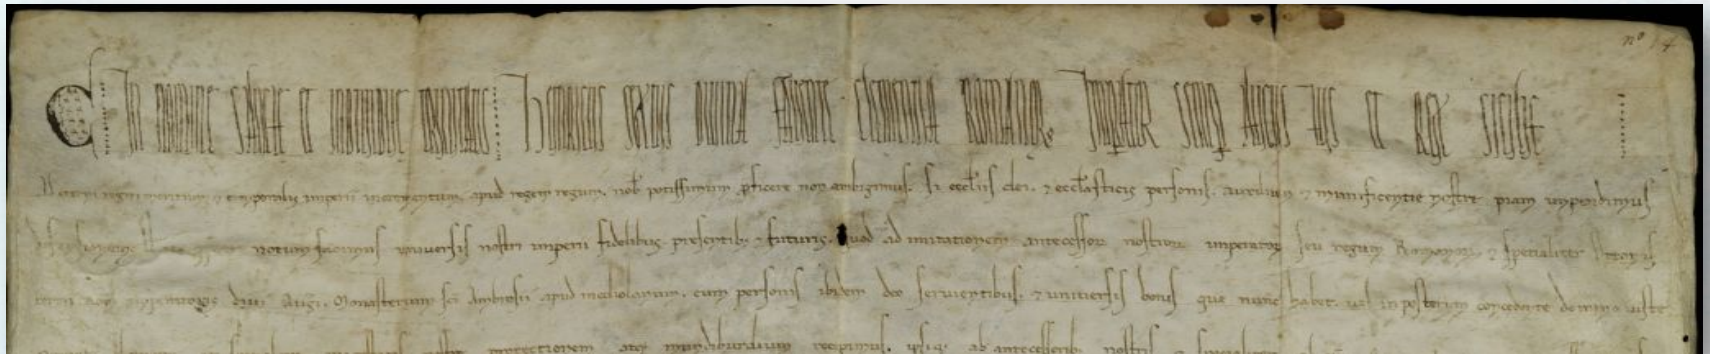 nº 14
In nomine sancte et individue trinitatis Henricus sextus divina favente clementia romanorꝫ Imperator semp Augustus et rex sicilie
eterni regni meritum & temporalis imperii incrementum apud regem regum nob potissimum proficere non ambigimus. si eccliis dei. & ecclasticis personis. auxilium & munificentie nostre piam impendimus
defensionem notum facimus universis nostri imperii fidelibus presentibꝫ & futuris. quod ad imitationem antecessorꝫ nostrorꝫ imperatorꝫ seu regum Romanorꝫ & specialiter Ottonis
imperatoris divi Augi. Monasterium sci Ambrosii apud mediolanum. cum personis ibidem deo servientibus. & universis bonis que nunc habet. vel in posterum concedente domino iuste
protectionem atqꝫ mundiburdium recipimus. ipsiqꝫ ab antecessoribꝫ nostris